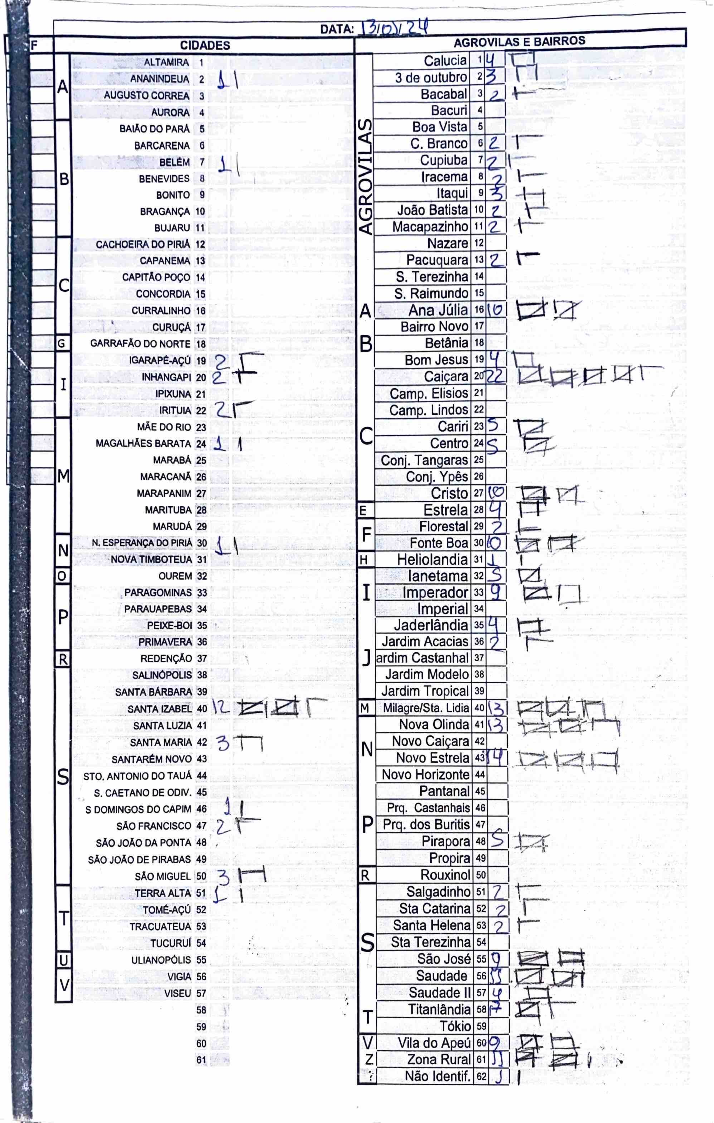 DATA: 13/01/24
F CIDADES AGROVILAS E BAIRROS
A
ALTAMIRA 1
ANANINDEUA 2 1
AUGUSTO CORREA 3
AURORA 4
B
BAIÃO DO PARÁ 5
BARCARENA 6
BELÉM 7 1
BENEVIDES 8
BONITO 9
BRAGANÇA 10
BUJARU 11
C
CACHOEIRA DO PIRIÁ 12
CAPANEMA 13
CAPITÃO POÇO 14
CONCORDIA 15
CURRALINHO 16
CURUÇÁ 17
G GARRAFÃO DO NORTE 18
I
IGARAPÉ-AÇÚ 19 2
INHANGAPI 20 2
IPIXUNA 21
IRITUIA 22 2
M
MÃE DO RIO 23
MAGALHÃES BARATA 24 1
MARABÁ 25
MARACANÃ 26
MARAPANIM 27
MARITUBA 28
MARUDÁ 29
N
N. ESPERANÇA DO PIRIÁ 30 1
NOVA TIMBOTEUA 31
O OUREM 32
P
PARAGOMINAS 33
PARAUAPEBAS 34
PEIXE-BOI 35
PRIMAVERA 36
R REDENÇÃO 37
S
SALINÓPOLIS 38
SANTA BÁRBARA 39
SANTA IZABEL 40 12
SANTA LUZIA 41
SANTA MARIA 42 3
SANTARÉM NOVO 43
STO. ANTONIO DO TAUÁ 44
S. CAETANO DE ODIV. 45
S DOMINGOS DO CAPIM 46 1
SÃO FRANCISCO 47 2
SÃO JOÃO DA PONTA 48
SÃO JOÃO DE PIRABAS 49
SÃO MIGUEL 50 3
T
TERRA ALTA 51 1
TOMÉ-AÇÚ 52
TRACUATEUA 53
TUCURUÍ 54
U ULIANÓPOLIS 55
V
VIGIA 56
VISEU 57
58
59
60
61
AGROVILAS
Calucia 1 4
3 de outubro 2 3
Bacabal 3 2
Bacuri 4
Boa Vista 5
C. Branco 6 2
Cupiuba 7 2
Iracema 8 2
Itaqui 9 3
João Batista 10 2
Macapazinho 11 2
Nazare 12
Pacuquara 13 2
S. Terezinha 14
S. Raimundo 15
A Ana Júlia 16 10
Bairro Novo 17
B Betânia 18
Bom Jesus 19 4
C
Caiçara 20 22
Camp. Elisios 21
Camp. Lindos 22
Cariri 23 5
Centro 24 5
Conj. Tangaras 25
Conj. Ypês 26
Cristo 27 10
E Estrela 28 4
F
Florestal 29 2
Fonte Boa 30 10
H Heliolandia 31 1
I
Ianetama 32 5
Imperador 33 9
Imperial 34
J
Jaderlândia 35 4
Jardim Acacias 36 2
ardim Castanhal 37
Jardim Modelo 38
Jardim Tropical 39
M Milagre/Sta. Lidia 40 13
N
Nova Olinda 41 13
Novo Caiçara 42
Novo Estrela 43 14
Novo Horizonte 44
P
Pantanal 45
Prq. Castanhais 46
Prq. dos Buritis 47
Pirapora 48 5
Propira 49
R Rouxinol 50
S
Salgadinho 51 2
Sta Catarina 52 2
Santa Helena 53 2
Sta Terezinha 54
São José 55 9
Saudade 56 11
Saudade II 57 4
T
Titanlândia 58 7
Tókio 59
V Vila do Apeú 60 9
Z Zona Rural 61 11
? Não Identif. 62 1